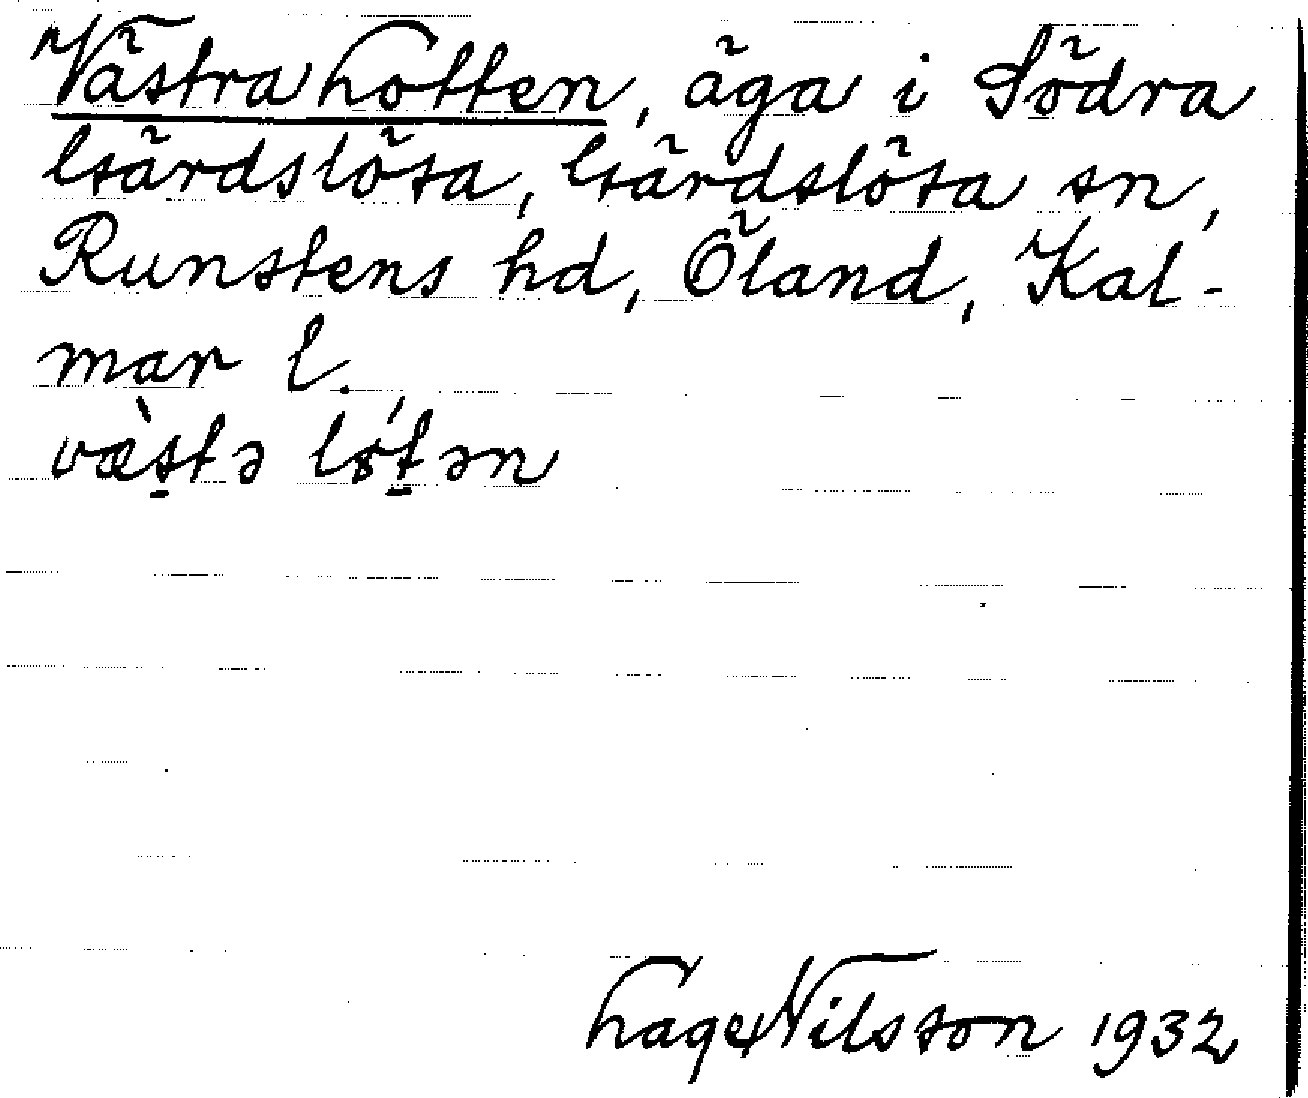 Västra Lotten, äga i Södra
Gärdslösa, Gärdslösa sn,
Runstens hd, Öland, Kal-
mar l.
væ̀s̱tə
Lage Nilsson 1932